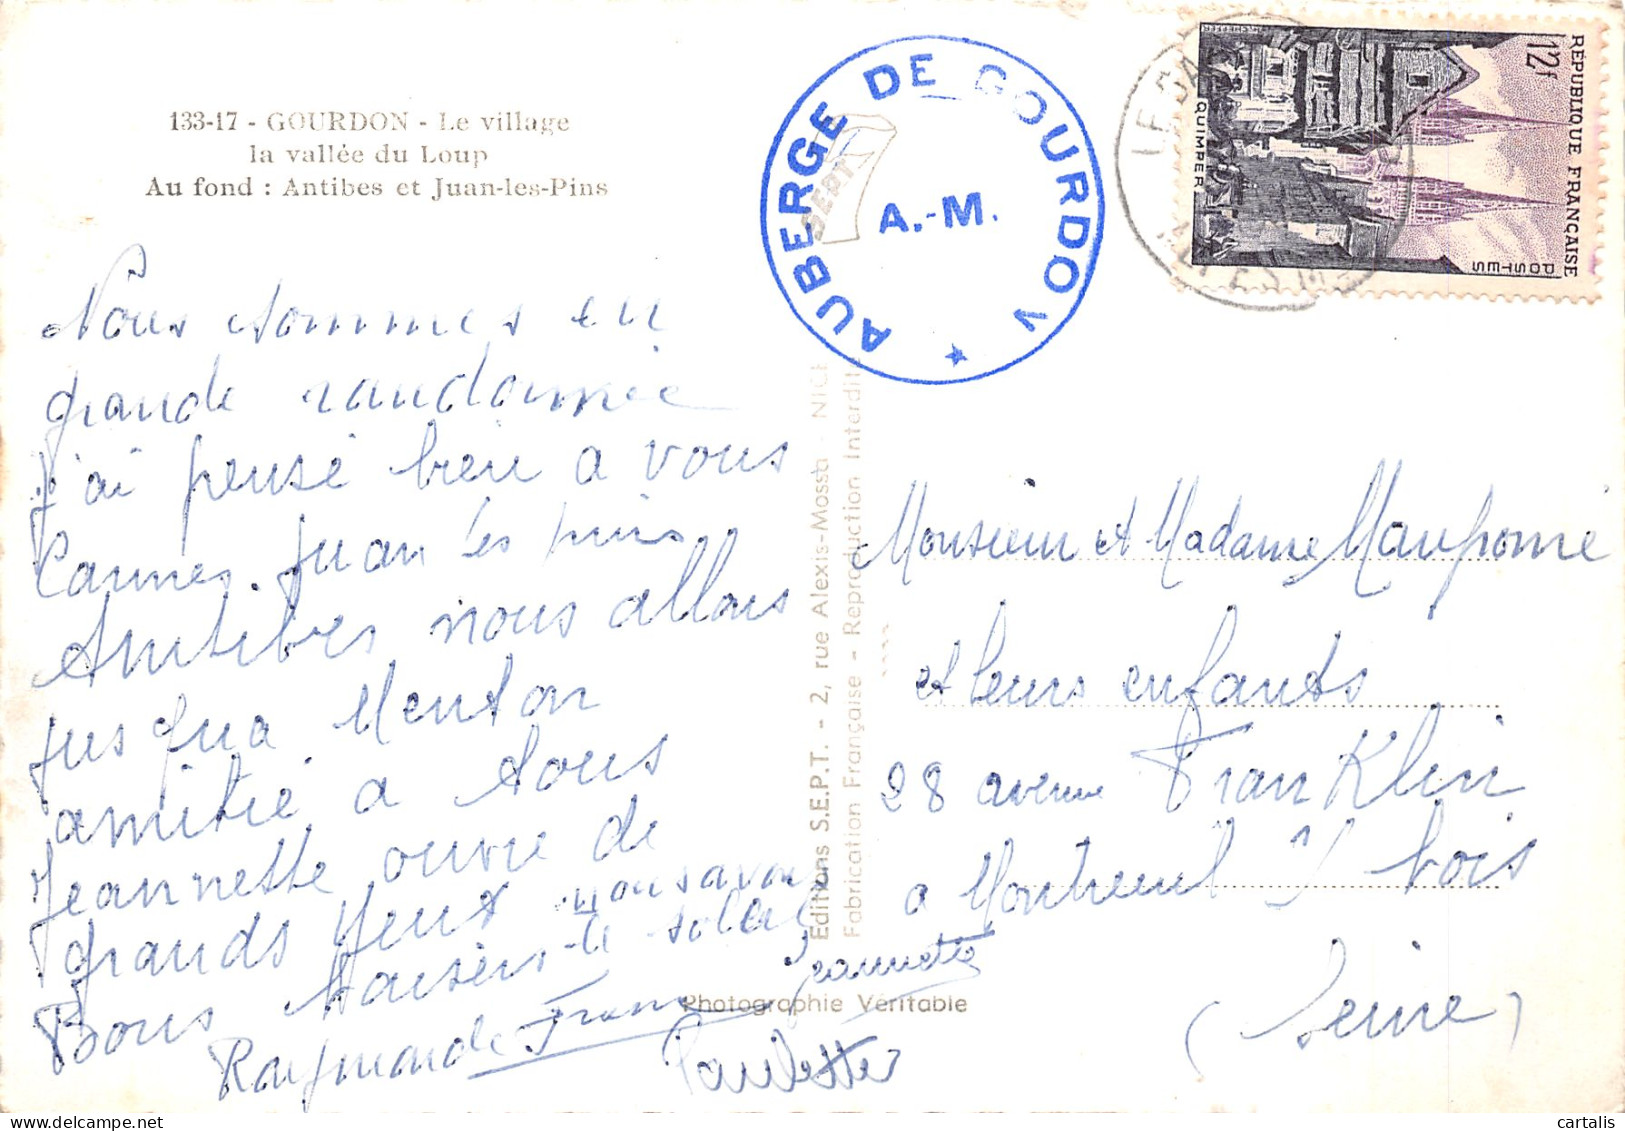 133-17 - GOURDON - Le village
la vallée du Loup
Au fond : Antibes et Juan-les-Pins
Nous sommes en
grande randonnée
j'ai pensé bien a vous
Cannes. Juan les pins
Antibes nous allons
jusqua Menton
amitié a tous
Jeannette ouvre de
grands yeux nous avons
le soleil
Bons Baisers
Raymonde Frans Jeannette
Paulette
SEPT
AUBERGE DE GOURDON
A.-M.
Editions S.E.P.T. - 2, rue Alexis-Mossa - NICE
Fabrication Française - Reproduction Interdite
Photographie Véritable
RÉPUBLIQUE FRANÇAISE
12F
POSTES
QUIMPER
LE BA
ALPES M
Monsieur et Madame Maupomé
et leurs enfants
28 avenue Franklin
a Montreuil s/ bois
(Seine)
cartalis